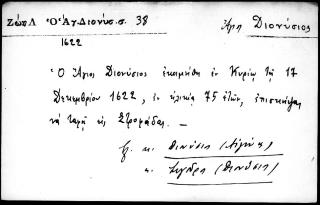 ΖώηΛ Ὁ Ἁγ. Διονύσ. σ. 38 Ἁγη Διονύσιος
1622
Ὁ Ἅγιος Διονύσιος ἐκοιμήθη ἐν Κυρίῳ τῇ 17
Δεκεμβρίου 1622, ἐν ἡλικίᾳ 75 ἐτῶν, ἐπισκήψας
νὰ ταφῇ εἰς Στροφάδας. —
Διονύσιος (Αἰγίνης)
Σιγοῦρος (Διονύσιος)